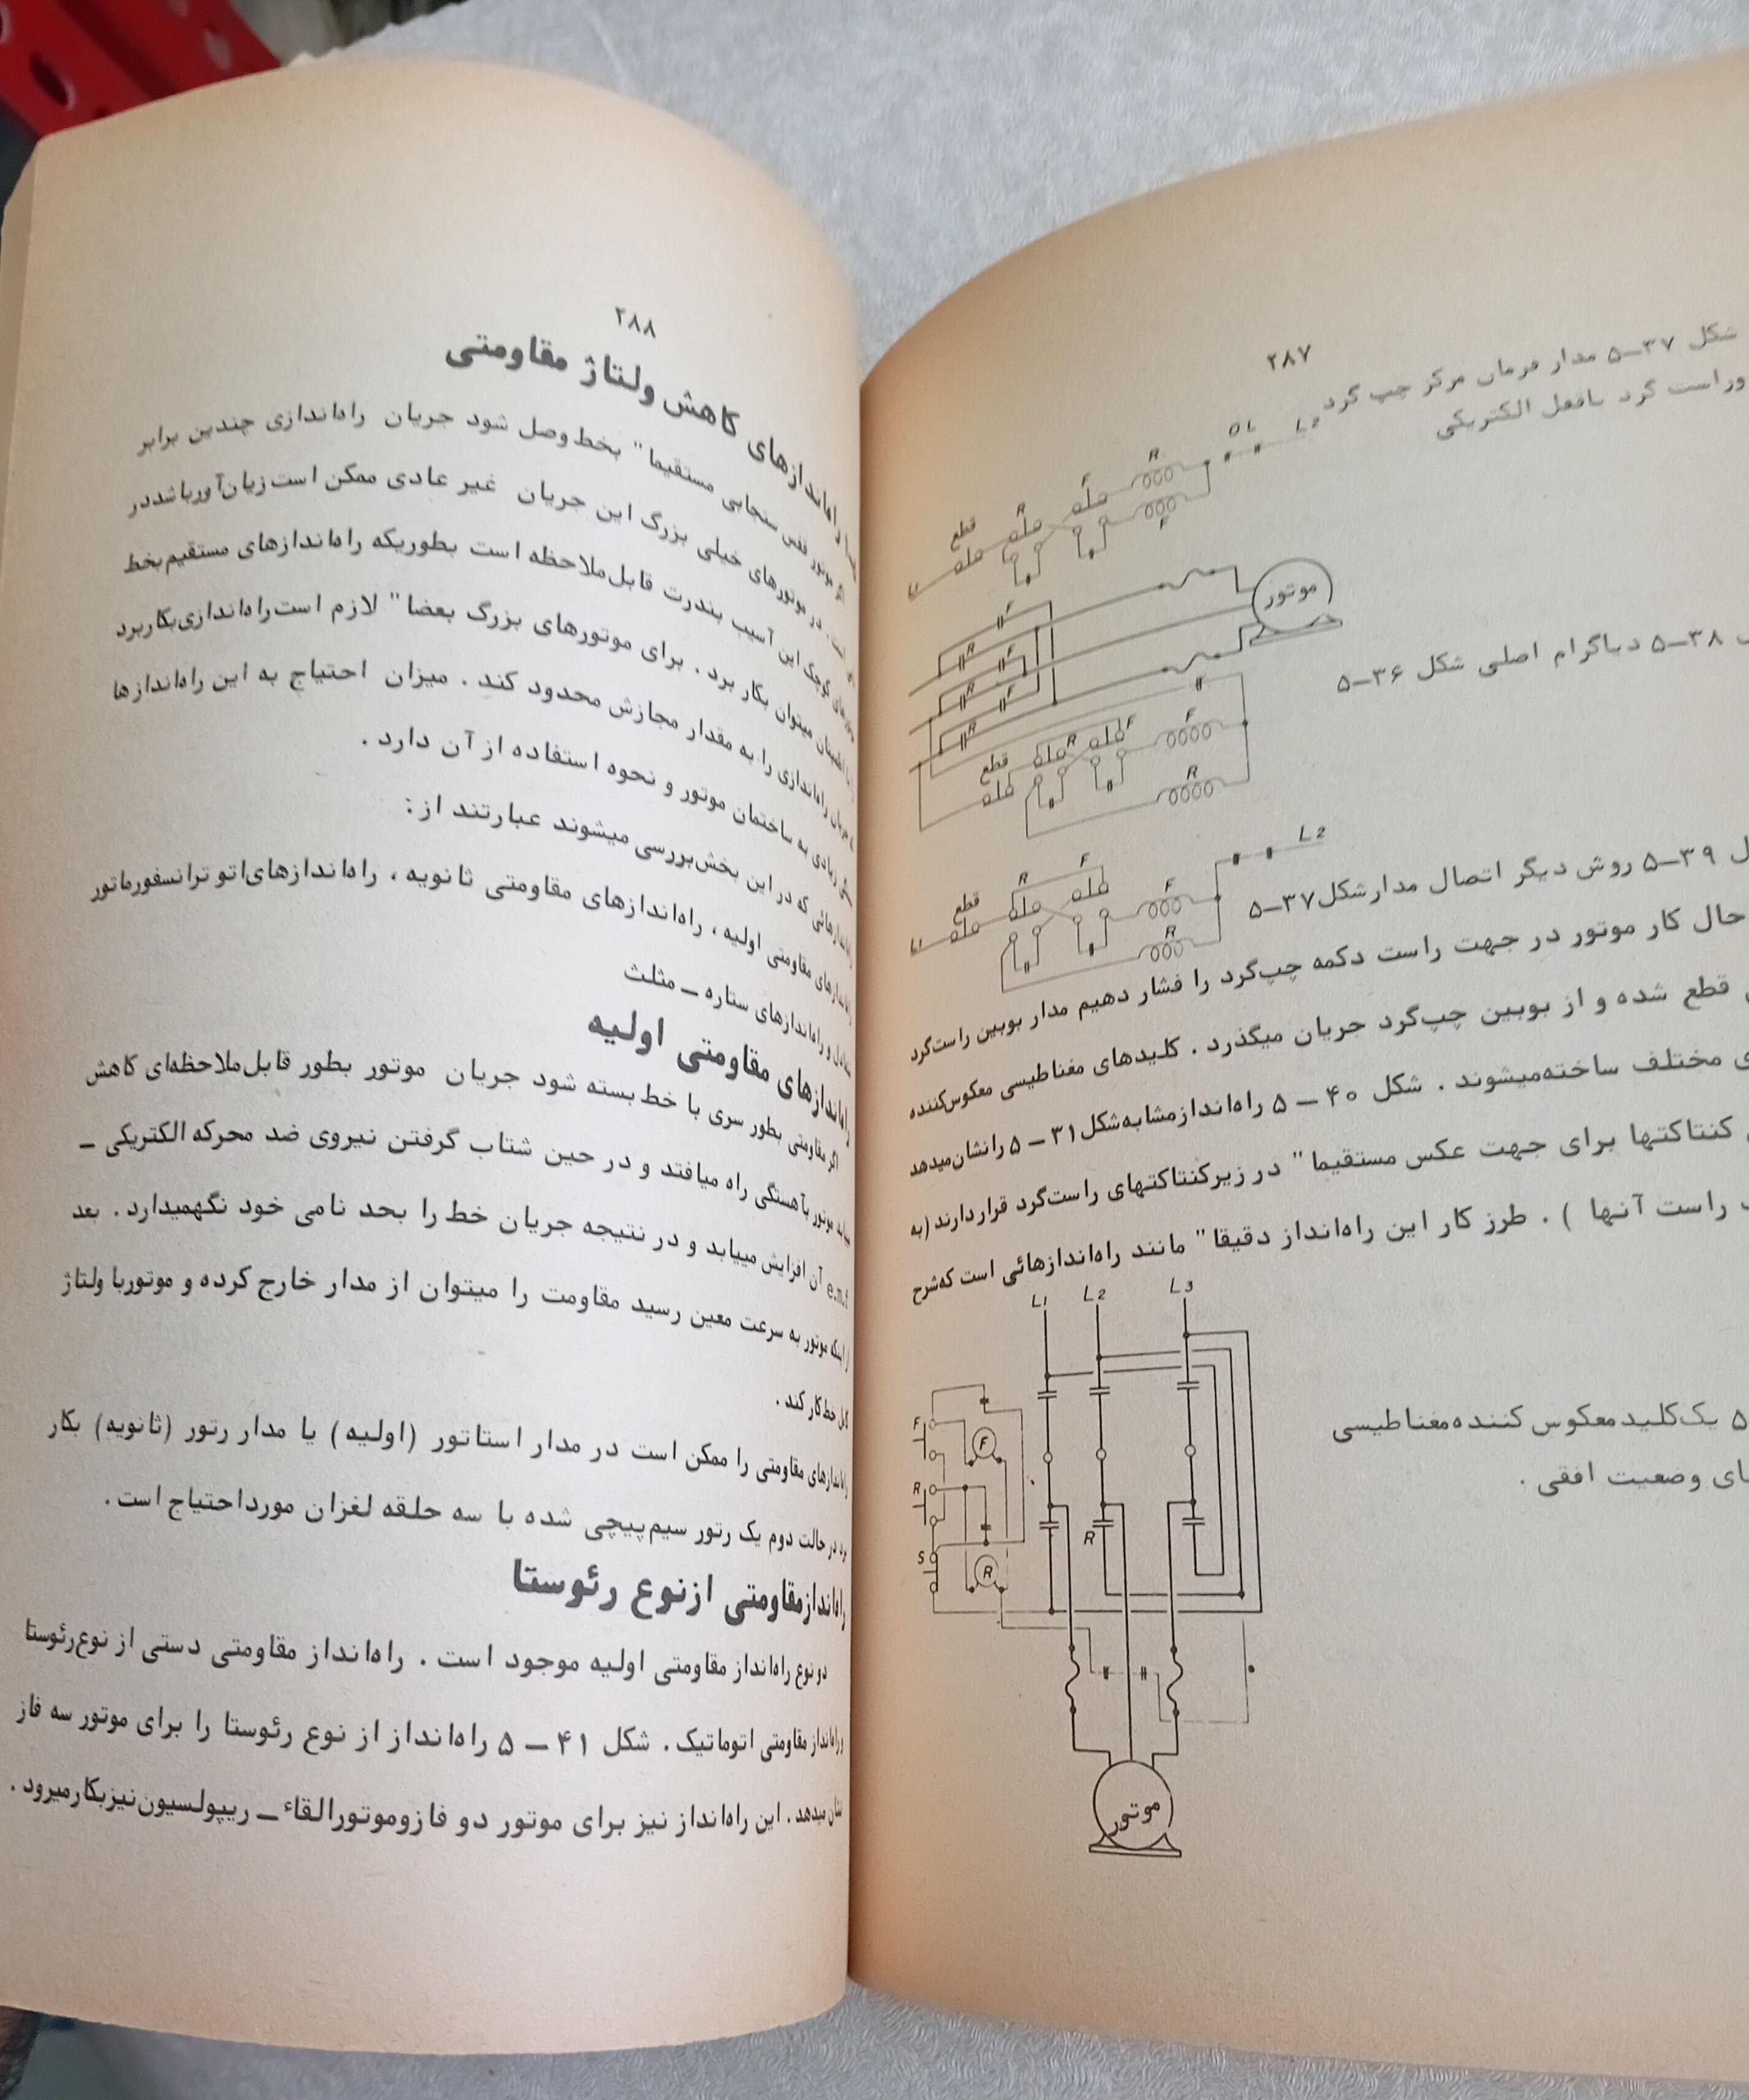 ۲۸۷
شکل ۳۷–۵ مدار فرمان مرکز چپ گرد
وراست گرد باقفل الکتریکی
قطع R F R OL L2
L1 F
موتور
F
R F
R F
R
۳۸–۵ دیاگرام اصلی شکل ۳۶–۵
قطع R F F
R
L2
قطع R F F
L1 R
۳۹–۵ روش دیگر اتصال مدارشکل۳۷–۵
حال کار موتور در جهت راست دکمه چپ‌گرد را فشار دهیم مدار بوبین راست‌گرد
قطع شده و از بوبین چپ‌گرد جریان میگذرد . کلیدهای مغناطیسی معکوس‌کننده
مختلف ساخته‌میشوند . شکل ۴۰ – ۵ راه‌اندازمشابه‌شکل۳۱ – ۵ رانشان‌میدهد
کنتاکتها برای جهت عکس مستقیما" در زیرکنتاکتهای راست‌گرد قراردارند (به
راست آنها ) . طرز کار این راه‌انداز دقیقا" مانند راه‌اندازهائی است که‌شرح
L1 L2 L3
F F
R
S R R
موتور
۵ یک‌کلیدمعکوس کننده‌مغناطیسی
وضعیت افقی .
۲۸۸
راه‌اندازهای کاهش ولتاژ مقاومتی
اگر موتور قفس سنجابی مستقیما" بخط وصل شود جریان راه‌اندازی چندین برابر
است . در موتورهای خیلی بزرگ این جریان غیر عادی ممکن است زیان‌آورباشددر
موتورهای کوچک این آسیب بندرت قابل‌ملاحظه است بطوریکه راه‌اندازهای مستقیم‌بخط
اطمینان میتوان بکار برد . برای موتورهای بزرگ بعضا" لازم است‌راه‌اندازی‌بکاربرد
که جریان راه‌اندازی را به مقدار مجازش محدود کند . میزان احتیاج به این راه‌اندازها
زیادی به ساختمان موتور و نحوه استفاده از آن دارد .
راه‌اندازهائی که در این بخش‌بررسی میشوند عبارتند از:
راه‌اندازهای مقاومتی اولیه ، راه‌اندازهای مقاومتی ثانویه ، راه‌اندازهای‌اتو ترانسفورماتور
و راه‌اندازهای ستاره – مثلث
راه‌اندازهای مقاومتی اولیه
اگر مقاومتی بطور سری با خط بسته شود جریان موتور بطور قابل‌ملاحظه‌ای کاهش
مییابد موتور بآهستگی راه میافتد و در حین شتاب گرفتن نیروی ضد محرکه الکتریکی –
e.m.f آن افزایش مییابد و در نتیجه جریان خط را بحد نامی خود نگهمیدارد . بعد
از اینکه موتور به سرعت معین رسید مقاومت را میتوان از مدار خارج کرده و موتوربا ولتاژ
کامل خط کار کند .
راه‌اندازهای مقاومتی را ممکن است در مدار استاتور (اولیه) یا مدار رتور (ثانویه) بکار
برد در حالت دوم یک رتور سیم‌پیچی شده با سه حلقه لغزان مورداحتیاج است .
راه‌اندازمقاومتی ازنوع رئوستا
دو نوع راه‌انداز مقاومتی اولیه موجود است . راه‌انداز مقاومتی دستی از نوع‌رئوستا
و راه‌انداز مقاومتی اتوماتیک . شکل ۴۱ – ۵ راه‌انداز از نوع رئوستا را برای موتور سه فاز
نشان میدهد . این راه‌انداز نیز برای موتور دو فازوموتورالقاء – ریپولسیون‌نیزبکارمیرود .